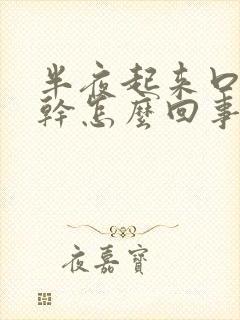 半夜起来口
幹怎麽回事
夜嘉寶